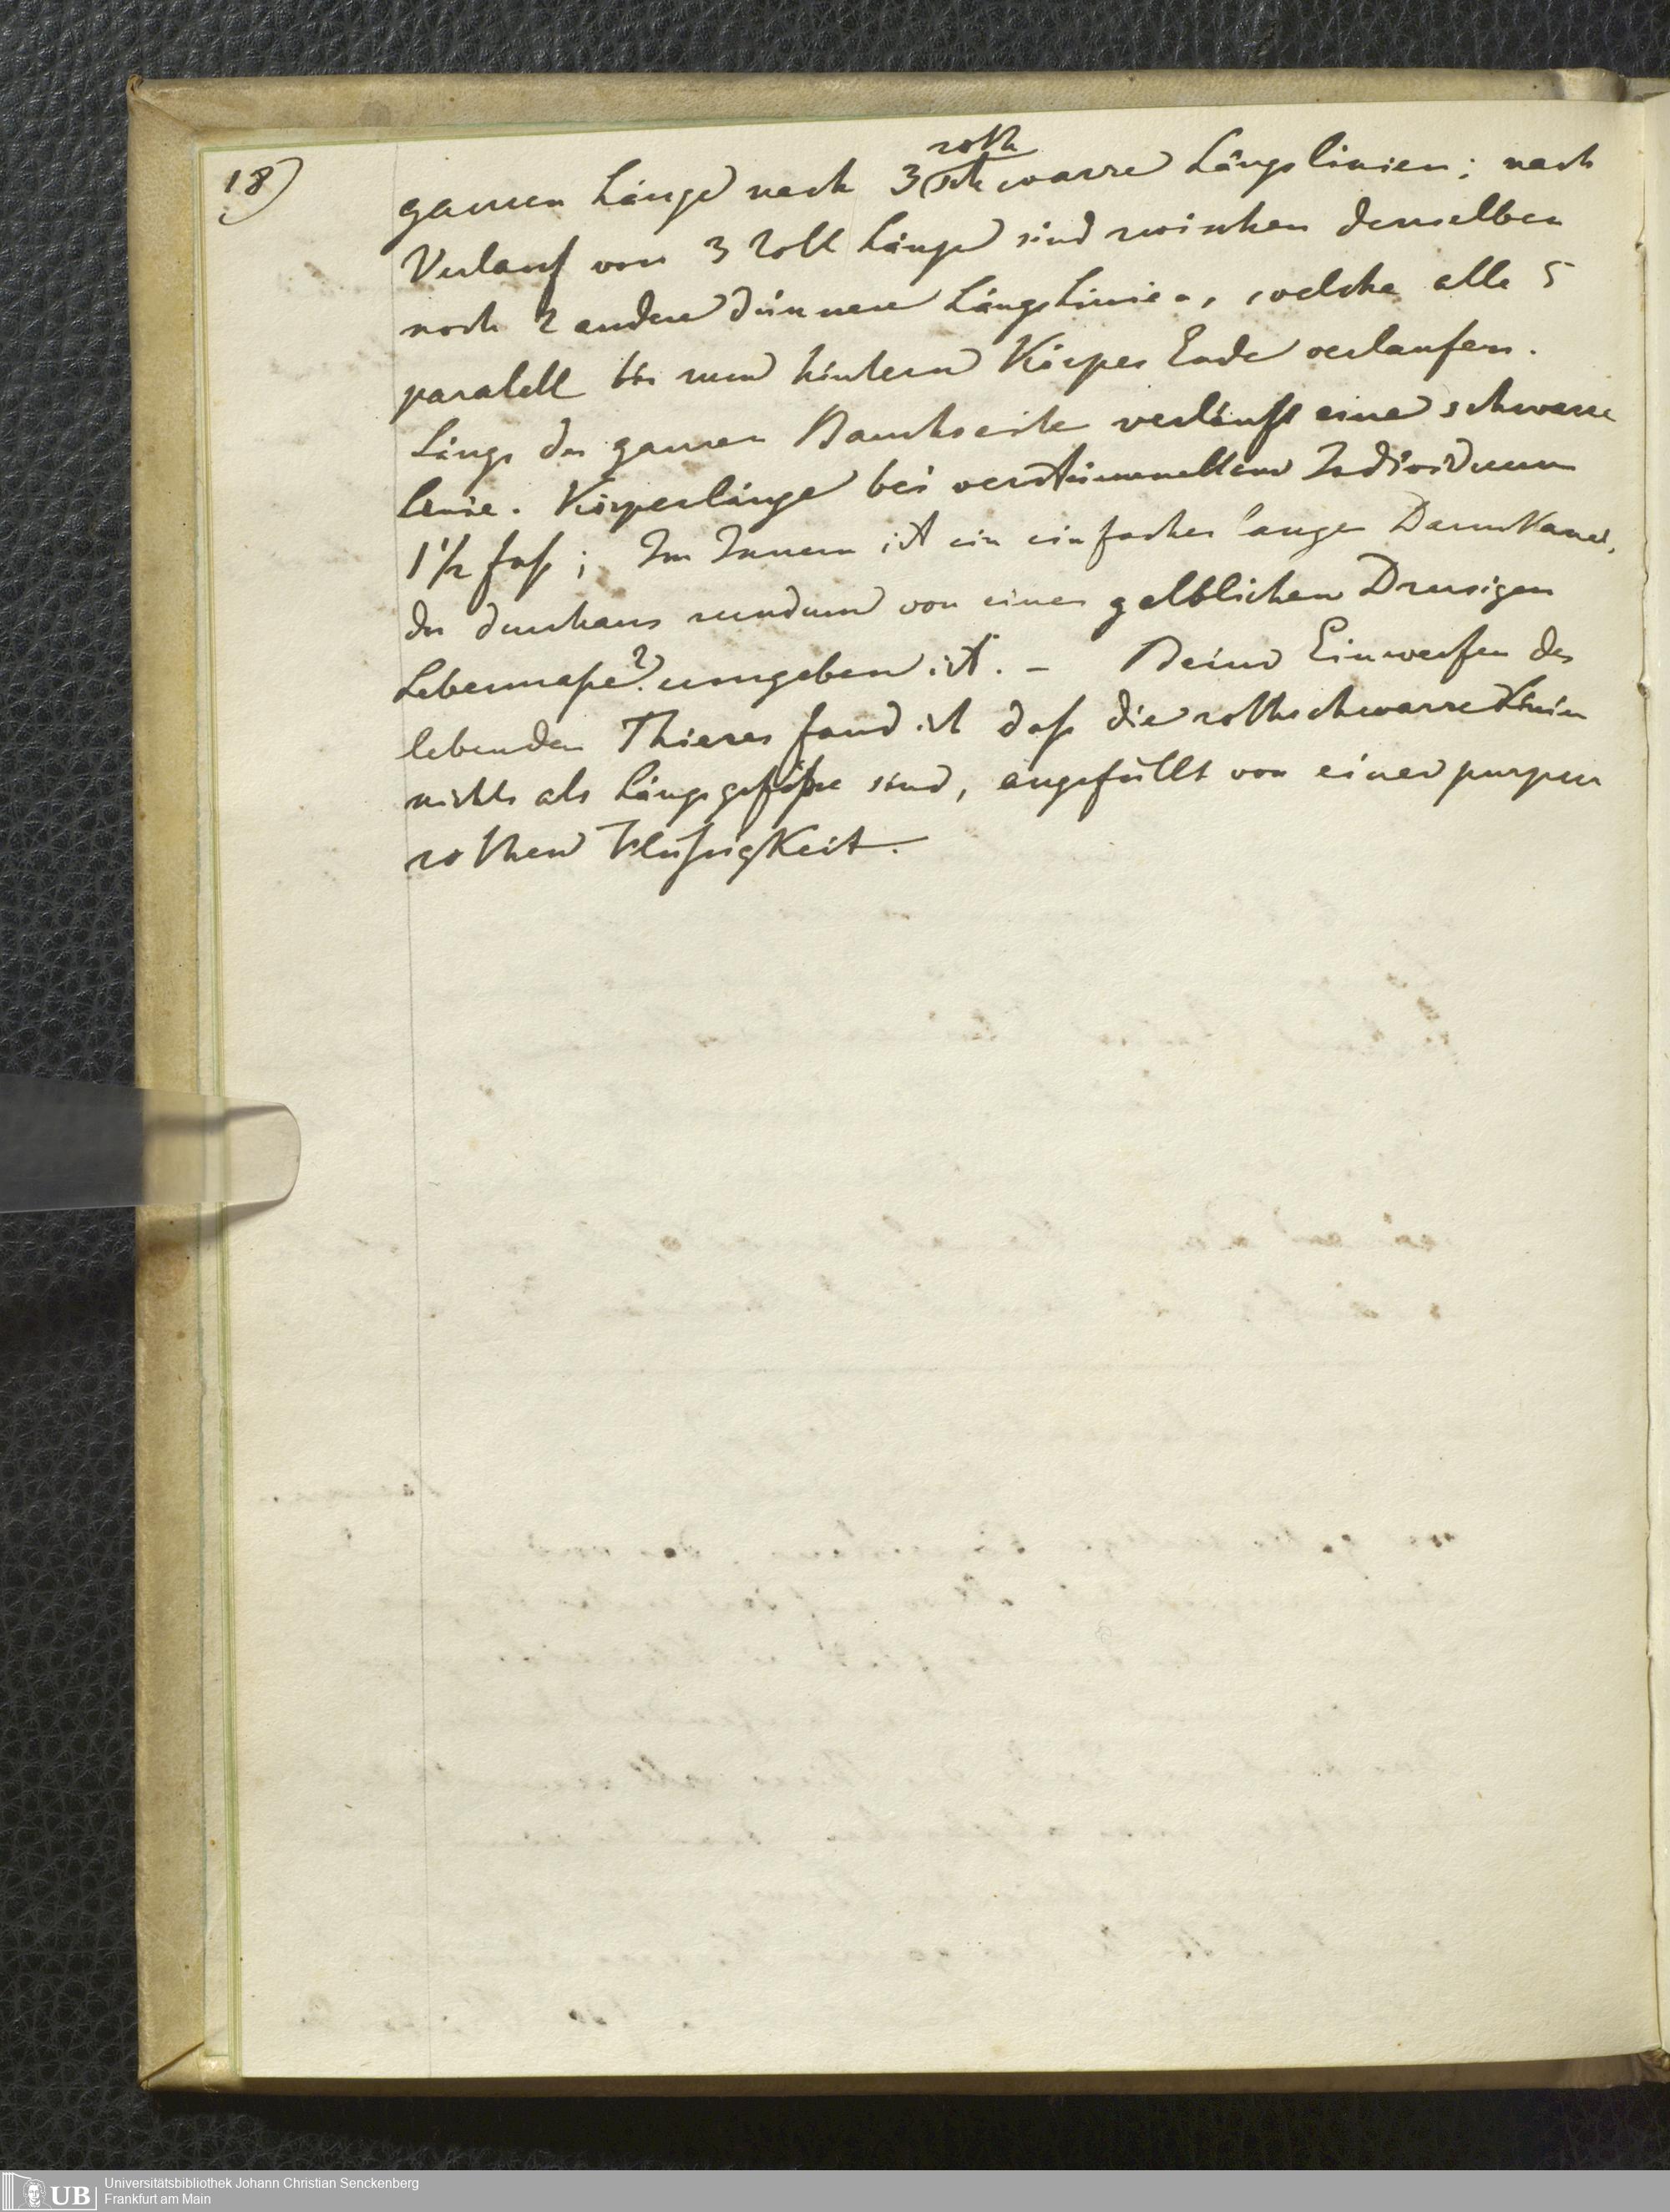 18)
roth
ganzen Länge nach 3 schwarze Längslinien; nach
Verlauf von 3 Zoll Länge sind zwischen denselben
noch 2 andere dünnere Längslinien, welche alle 5
paralell bis zum hintern Körper Ende verlaufen.
Längs der ganzen Bauchseite verläuft eine schwarze
Linie. Körperlänge bei verstümmeltem Individuum
1 1/2 fuß; Im Innern ist ein einfacher langer Darmkanal,
der durchaus rundum von einer gelblichen Drusigen
Lebermaße? umgeben ist. – Beim Einwerfen des
lebenden Thieres fand ich daß die rothschwarze Linien
nichts als Längsgefäße sind, angefüllt von einer purpur
rothen Flußigkeit.
UB Universitätsbibliothek Johann Christian Senckenberg
Frankfurt am Main